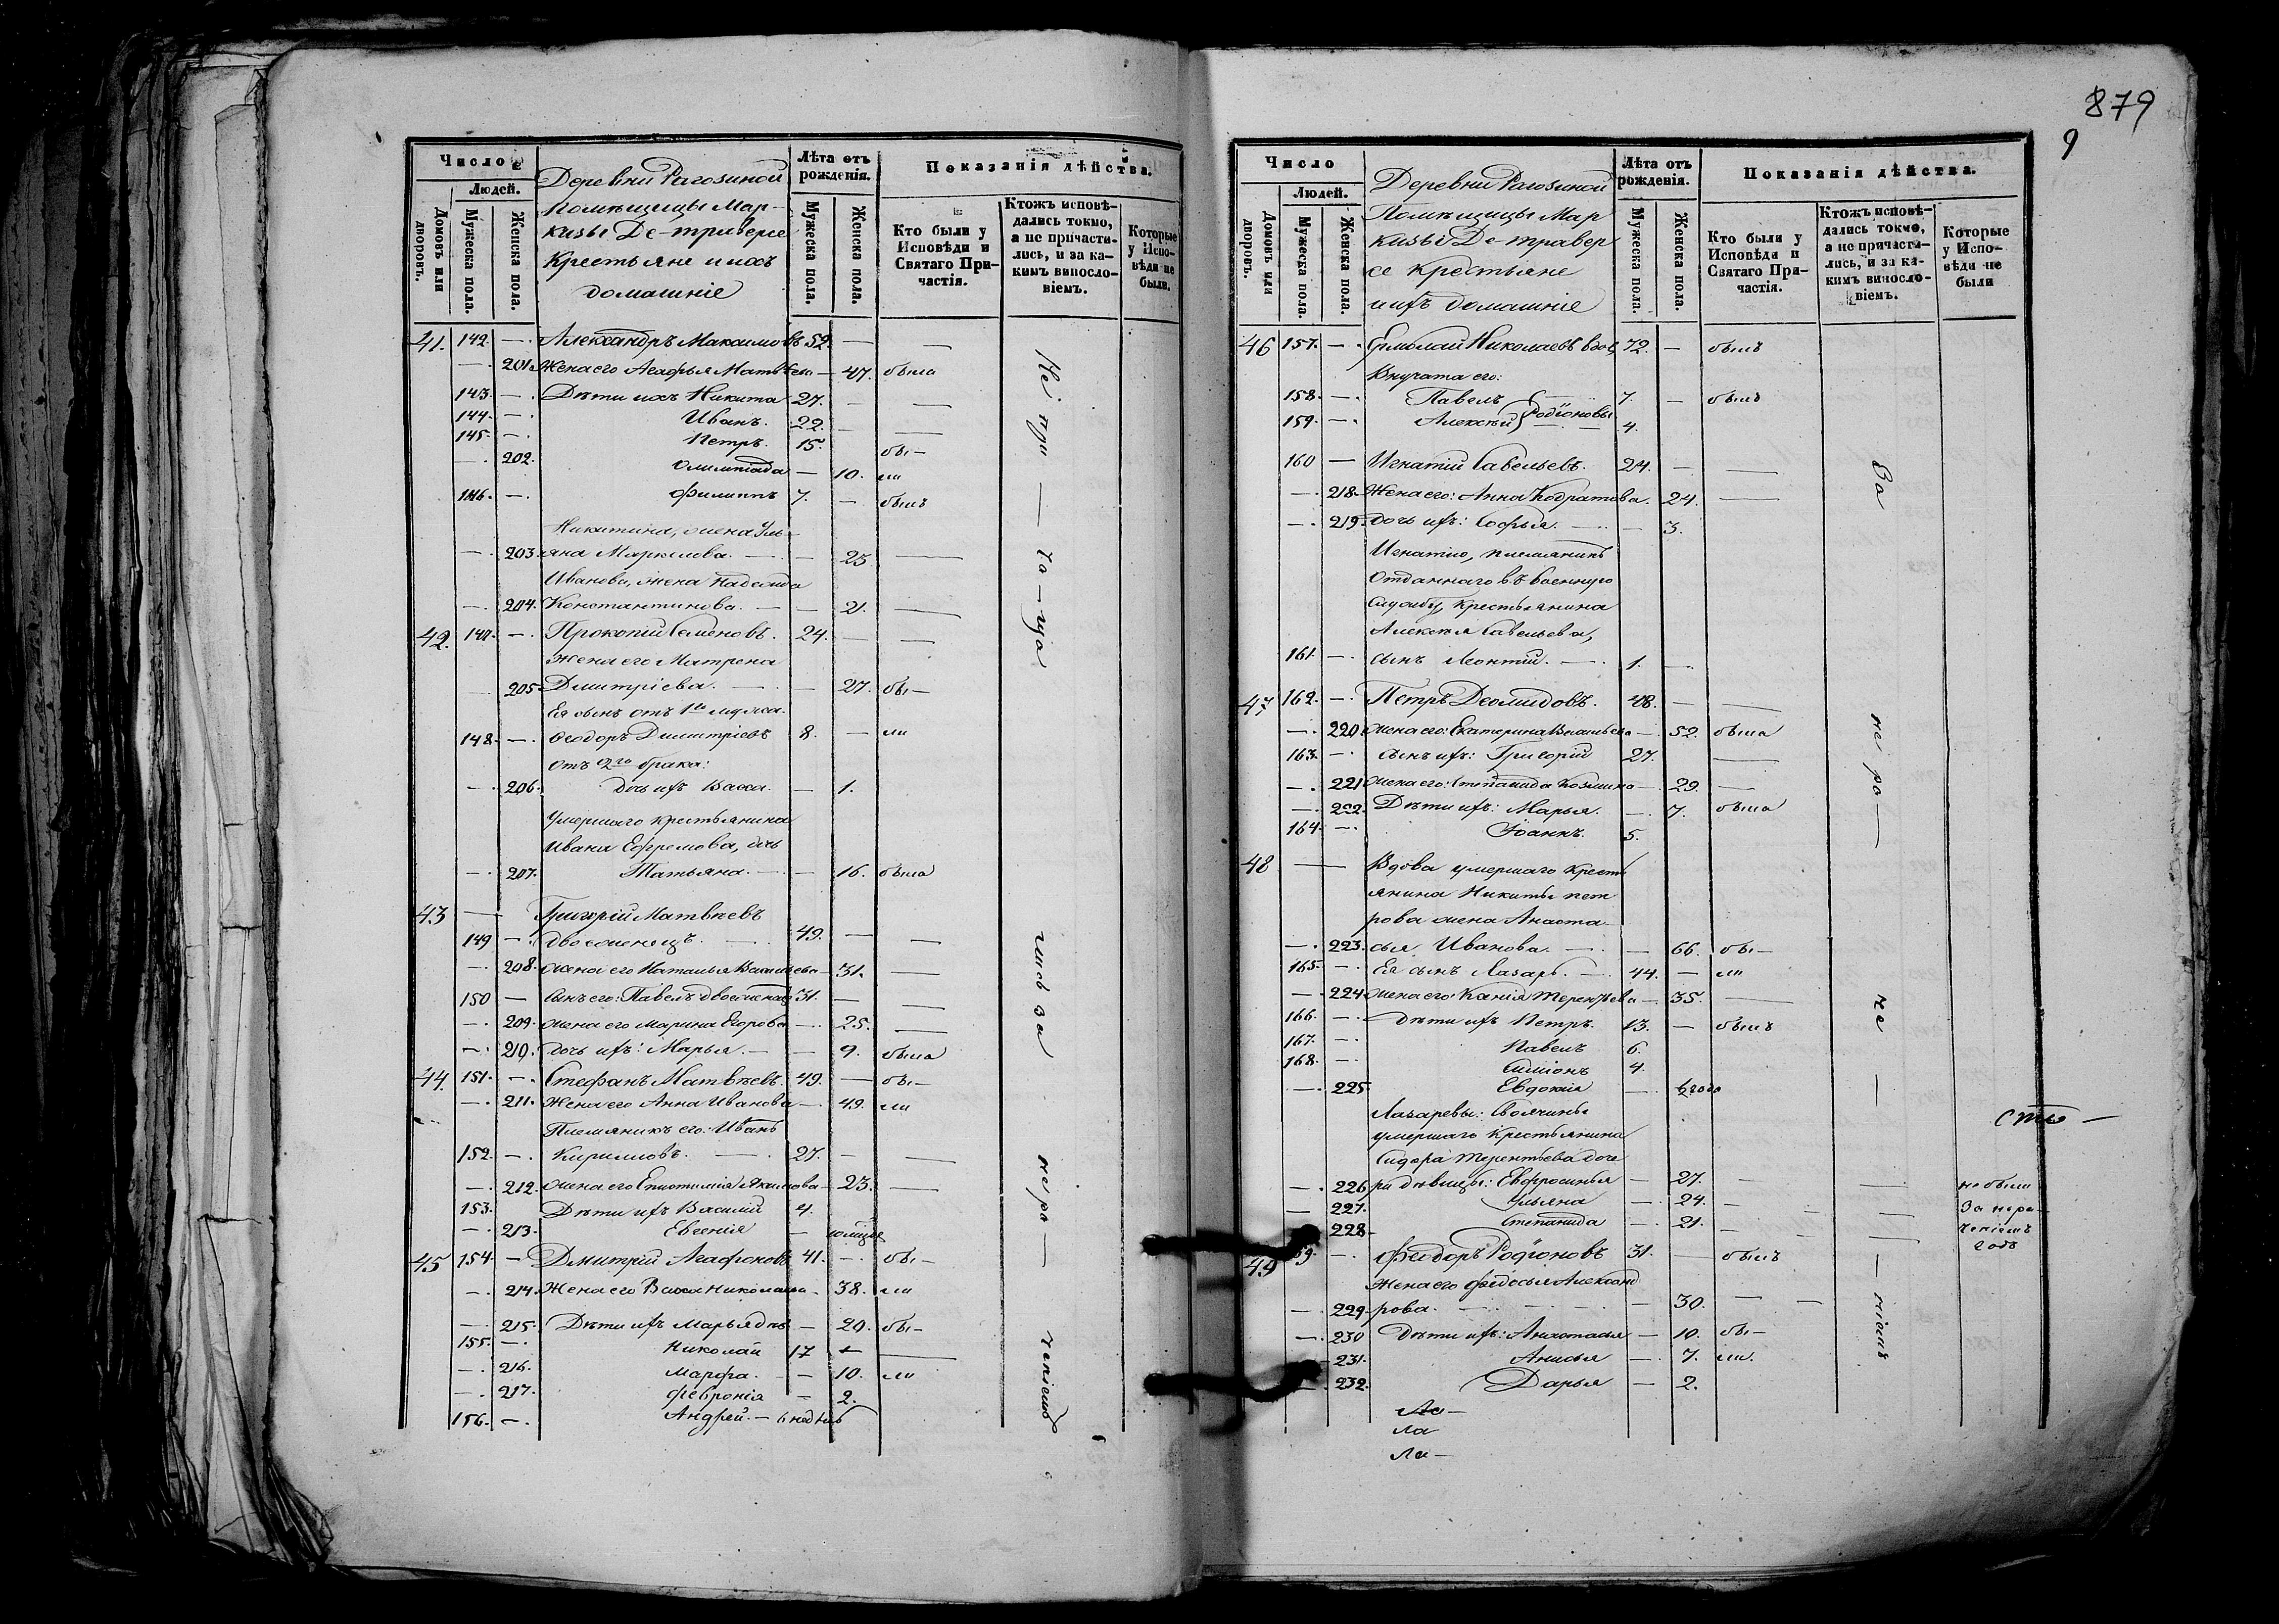 879
9
Число
Людей.
Домовъ или дворовъ.
Мужеска пола.
Женска пола.
Деревни Рагозиной
помѣщицы Мар-
кизы Де-траверсе
Крестьяне и ихъ
домашніе
Лѣта отъ рожденія.
Мужеска пола.
Женска пола.
Показанія дѣйства.
Кто были у Исповѣди и Святаго При-частія.
Ктожъ исповѣ-дались токмо, а не причасти-лись, и за ка-кимъ виносло-віемъ.
Которые у Испо-вѣди не были.
41. 142. — Александръ Максимовъ 52. — —
— 201. Жена его Агафья Матвѣева — 47. была
143. — Дѣти ихъ Никита 27. — —
144. — Иванъ. 22. — —
145. — Петръ. 15. бы-
— 202. Олимпіада — 10. ли
146. — Филиппъ 7. — былъ
Никитина, жена Уль-
— 203. яна Маркелова. — 25 —
Иванова, жена Надежда
— 204. Константинова. — — 21. —
42. 147. — Прокопій Семеновъ. 24. — —
жена его Матрена
205 Дмитріева. — — 27. бы-
Ея сынъ отъ 1го мужа.
148. — Ѳеодоръ Димитріевъ 8. — ли
отъ 2го брака:
— 206. Дочь ихъ Васса. — 1.
Умершаго крестьянина
Ивана Ефремова, дочь
— 207. Татьяна. — — 16. была
43 — Григорій Матвѣевъ
149 — двоеженецъ. — 49. — —
— 208. жена его Наталья Васильева — 31. —
150 — Сынъ его: Павелъ двоеженецъ 31. — —
— 209. жена его Марина Егорова — 25. —
— 210. дочь ихъ: Марья. — — 9. была
44. 151. — Стефанъ Матвѣевъ. 49. — бы-
— 211. Жена его Анна Иванова — 49. ли
Племяникъ его: Иванъ
152. — Кириловъ. — 27. — —
— 212. жена его Епистимія Акимова — 23. —
153. Дѣти ихъ Василій 4.
— 213. Евгенія —
45 154. — Дмитрій Агафоновъ 41. — бы-
— 214. Жена его Васса Николаева — 38. ли
— 215. Дѣти ихъ Марья дѣв. — 20. бы-
155. — Николай 17 —
— 216. Марфа. — 10. ли
— 217. Февронія — 2.
156. — Андрей. — 6 недѣль
Не при — ча — ща
лись за
не ра —
ченіемъ
Число
Людей.
Домовъ или дворовъ.
Мужеска пола.
Женска пола.
Деревни Рагозиной
Помѣщицы Мар
кизы Де-травер
се крестьяне
и ихъ домашніе
Лѣта отъ рожденія.
Мужеска пола.
Женска пола
Показанія дѣйства.
Кто были у Исповѣди и Святаго При-частія.
Ктожъ исповѣ-дались токмо, а не причаста-лись, и за ка-кимъ виносло-віемъ.
Которые у Испо-вѣди не были
46 157. — Ермолай Николаевъ вдов. 72. — былъ
Внучата его:
158. — Павелъ 7. — былъ
159. — Алексѣй Родіоновы 4.
160 — Игнатій Савельевъ. 24. — —
— 218. Жена его: Анна Кодратова. 24. —
— 219. дочь ихъ: Софья. — — 3.
Игнатію, племянникъ
Отданнаго въ военную
Службу, крестьянина
Алексѣя Савельева,
161. — сынъ Леонтій. — 1. —
47 162. — Петръ Деомидовъ. 48. — —
— 220 жена его: Екатерина Васильева — 52. была
163. — сынъ ихъ: Григорій 27. —
— 221 жена его: Степанида Козмина — 29. —
— 222. Дѣти ихъ: Марья. — 7. была
164. — Іоаннъ. 5.
48 — Вдова умершаго кресть
янина Никиты пет
рова жена Анаста
— 223. сія Иванова. — — 66. бы-
165. — Ея сынъ Лазарь. — 44. — ли
— 224 жена его: Ксенія Терентьева — 35. —
166. — Дѣти ихъ Петръ. 13. — былъ
167. — Павелъ 6.
168. — Симіонъ 4.
— 225 Евдокія —
Лазаревы: Своячины
умершаго крестьянина
Сидора Терентьева доче
— 226 ри дѣвицы: Евфросинья — 27. — —
— 227. Ульяна — 24. — —
228. Степанида — 21. —
49 — Ѳеодоръ Родіоновъ 31. — былъ
Жена его Ѳедосья Александ
— 229. рова. — — 30. —
— 230 Дѣти ихъ: Анастасья — 10. бы-
— 231. Анисья — 7. ли.
— 232. Дарья — 2.
За
не ра —
че —
— ніемъ
сть —
не были
За нера
ченіемъ
2 годъ
Ла-
Ла
Ла-